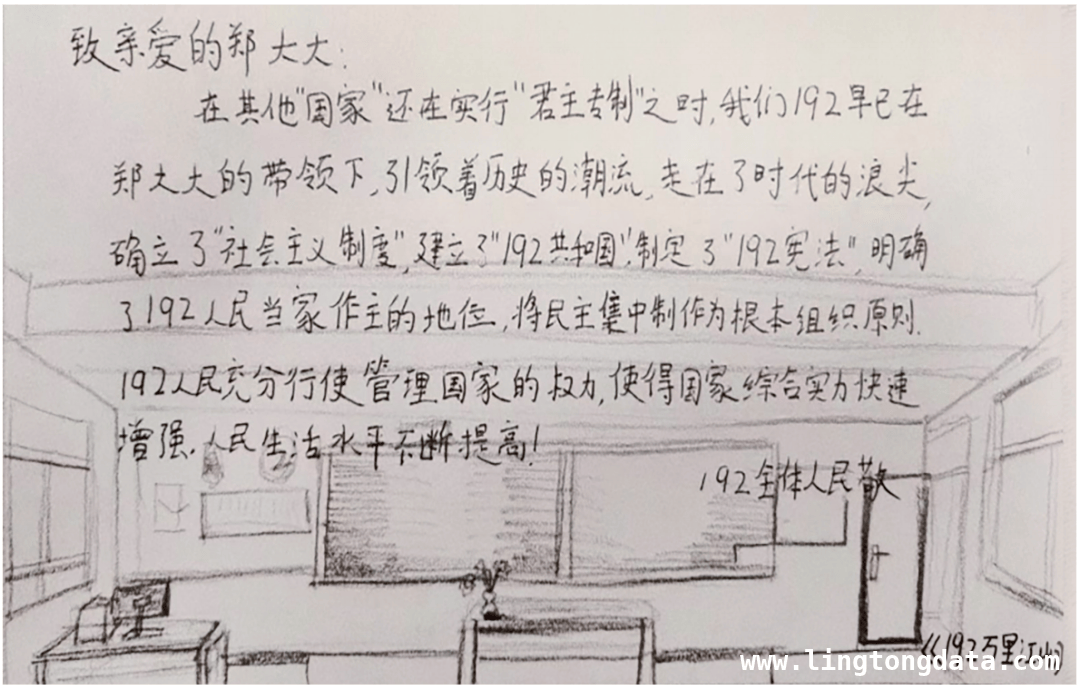 致亲爱的郑大大:
在其他"国家"还在实行"君主专制"之时,我们192早已在
郑大大的带领下,引领着历史的潮流,走在了时代的浪尖,
确立了"社会主义制度",建立了"192共和国",制定了"192宪法",明确
了192人民当家作主的地位,将民主集中制作为根本组织原则.
192人民充分行使管理国家的权力,使得国家综合实力快速
增强,人民生活水平不断提高!
192全体人民敬
《192万里江山》
www.lingtongdata.com